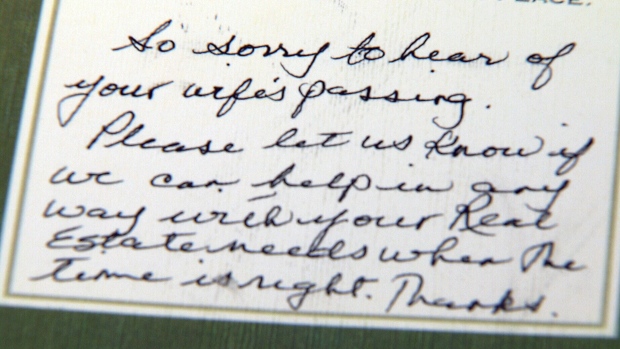 So sorry to hear of
your wife's passing.
Please let us know if
we can help in any
way with your Real
Estate needs when the
time is right. Thanks.